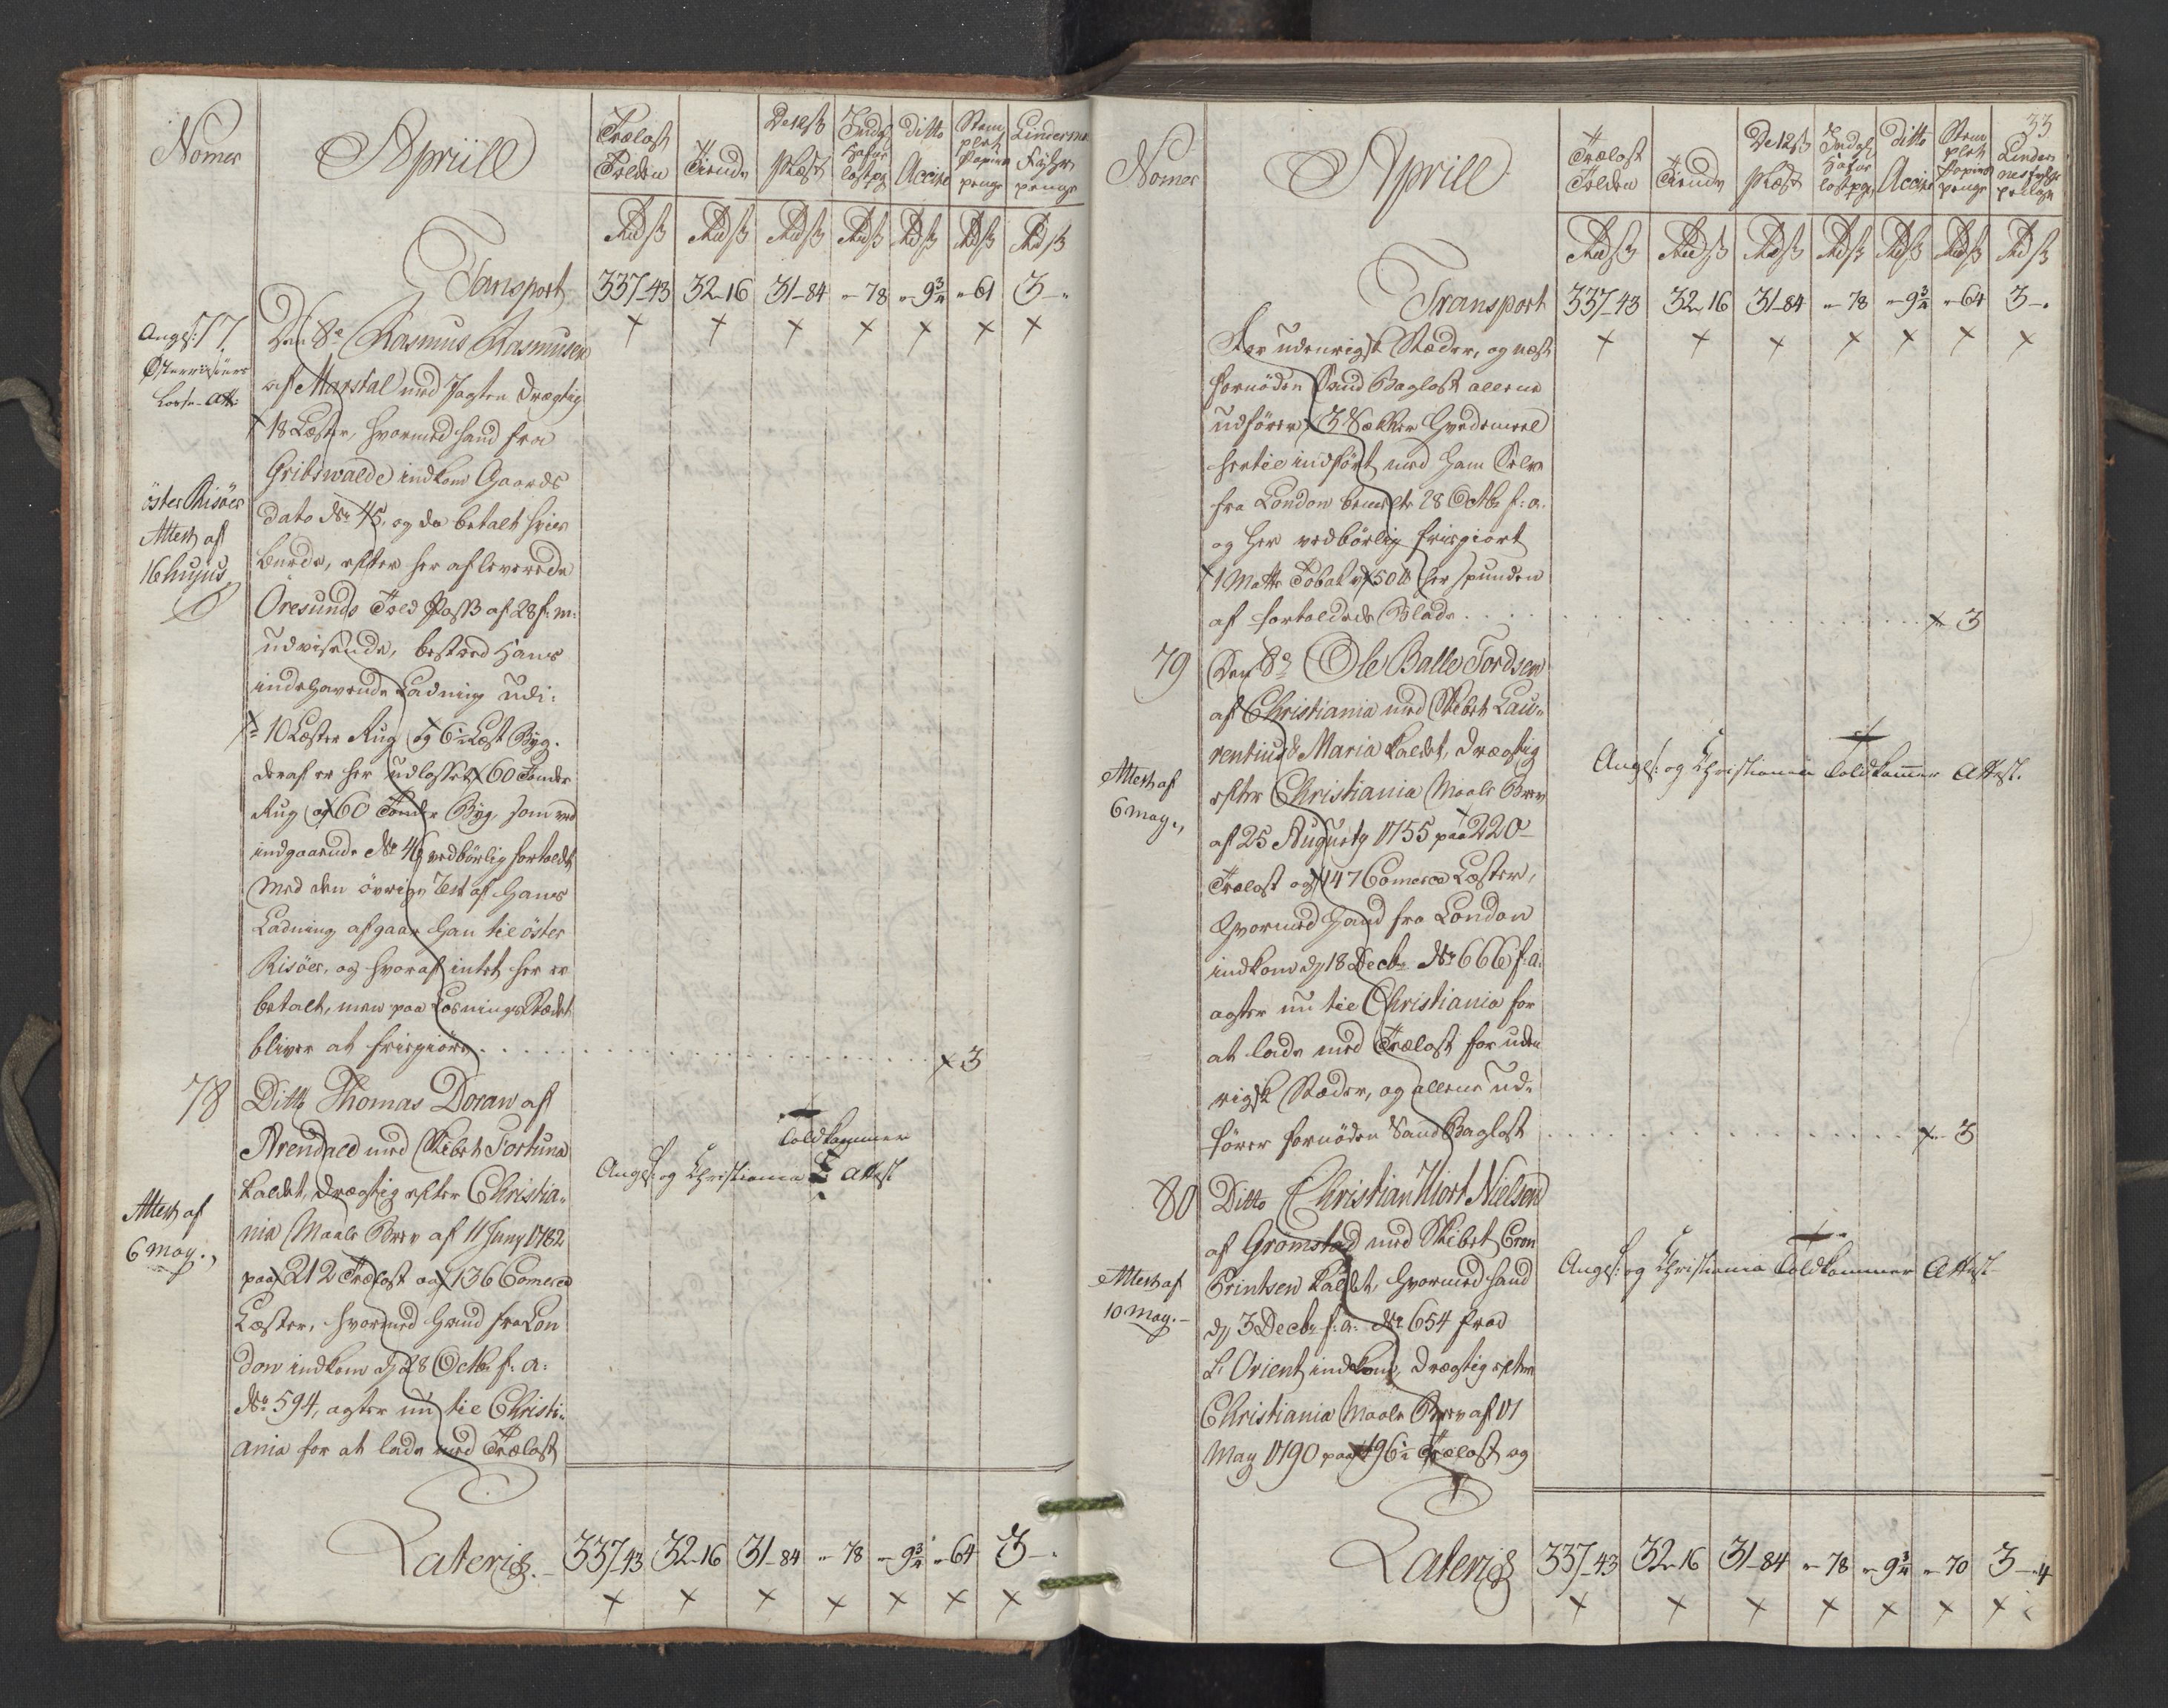 Nomer
Apriill
Trælast Tolden
Tiende
De 12 ß Plact
Indl: Hafne lastpg
Ditto Accise
Stemplet Papiirs penge
Lindersnes Fyhrs penge
Rd ß Rd ß Rd ß Rd ß Rd ß Rd ß Rd ß
Transport 337-43 32-16 31-84 "-78 "-9¾ "-61 3-"
Angl: 77.
Österrisöers
Losse-Att:
Den 8de Rasmus Rasmusen
af Marstal med Jagten drægtig
18 Læster, hvormed hand fra
Gribswalde indkom Gaards
dato No 45, og da betalt hvis
burde, efter her afleverede
Öresunds Told Pass af 28 f: m:
udvisende, bestod Hans
indehavende Ladning udi:
10 Læster Rug og 6½ Læst Byg.
deraf er her udlosset 60 Tønder
Rug og 60 Tønder Byg, som ved
indgaaende No 46 vedbörlig fortoldt
Med den övrige Rest af Hans
Ladning afgaar Han til öster
Risöer, og hvoraf intet her er
betalt, men paa Losnings Stædet
bliver at frigiöre . . . . . 3
öster Risöer
Attest af
16 hujus
78 Ditto Thomas Doran af
Arendall med Skibet Fortuna
kaldet, drægtig efter Christia-
nia Maale Brev af 11 Juny 1782
paa 212 Trælast og 136 Comerce
Læster, hvormed Hand fra Lon
don indkom dj 28 Octbr f: a:
No 594, agter nu til Christi-
ania for at lade med Trælast
Attest af
6 May.
Toldkammer
Angl: og Christiania Attest
Lateris. 337-43 32-16 31-84 "-78 "-9¾ "-64 3-"
33
Nomer
Aprill
Trælast Tolden
Tiende
De 12 ß Plact
Indl: Hafne lastpg
Ditto Accise
Stemplet Papiirs penge
Lindersnes fyhrs penge
Rd ß Rd ß Rd ß Rd ß Rd ß Rd ß Rd ß
Transport 337-43 32-16 31-84 "-78 "-9¾ "-64 3-"
for udenrigsk Stæder, og næst
fornöden Sand Baglast allene
udfører 3 Sækker Hvedemeel
hertil indfört med Ham Selv
fra London bemelte 28 Octbr f: a:
og her vedbörlig frigiort
1 Matte Tobak 50 ℔ her spunden
af fortoldede Blade . . . . . 3
79 Den 8de Ole Balle Tordsen
af Christiania med Skibet Lau-
rentius & Maria kaldet, drægtig
efter Christiania Maale Brev
af 25 Augusty 1755 paa 220
Trælast og 147 Comerce Læster,
Hvormed Hand fra London
indkom dj 18 Decbr No 666 f: a:
agter nu til Christiania for
at lade med Trælast for uden
rigsk Stæder, og allene ud-
fører fornöden Sand Baglast . . . . . 3
Attest af
6 May.
Angl: og Christiania Toldkammer Attest.
80 Ditto Christian Hiort Nielsen
af Gromstad med Skibet Cron
Printsen kaldet, Hvormed Hand
dj 3 Decbr f: a: No 654 frad
L'Orient indkom, drægtig efter
Christiania Maale Brev af 17
May 1790 paa 196½ Trælast og
Attest af
10 May.
Angl: og Christiania Toldkammer Attest
Lateris 337-43 32-16 31-84 "-78 "-9¾ "-70 3-"4